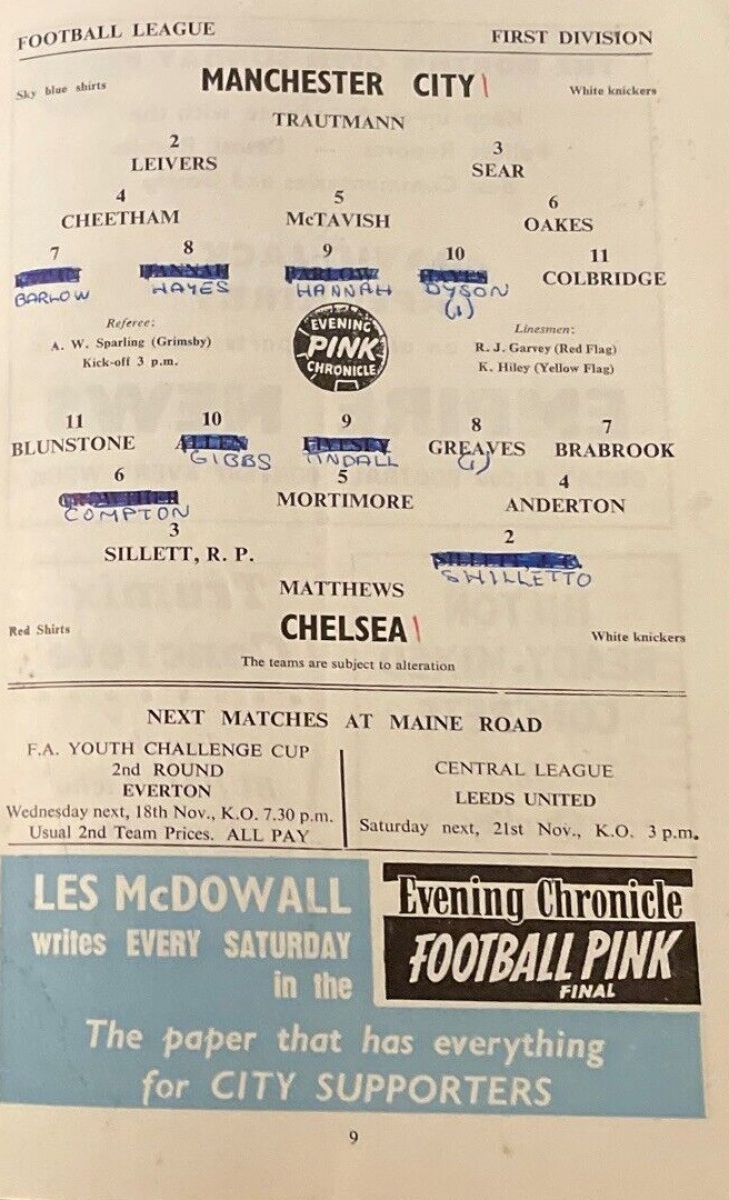 FOOTBALL LEAGUE FIRST DIVISION
Sky blue shirts MANCHESTER CITY White knickers
TRAUTMANN
2 3
LEIVERS SEAR
4 5 6
CHEETHAM McTAVISH OAKES
7 8 9 10 11
HANNAH BARLOW HAYES COLBRIDGE
BARLOW HAYES HANNAH DYSON
(1)
Referee: EVENING Linesmen:
A. W. Sparling (Grimsby) PINK R. J. Garvey (Red Flag)
Kick-off 3 p.m. CHRONICLE K. Hiley (Yellow Flag)
11 10 9 8 7
BLUNSTONE ALLEN GREAVES BRABROOK
GIBBS TINDALL (1)
6 5 4
MORTIMORE ANDERTON
COMPTON
3 2
SILLETT, R. P. SILLETT, J. C.
SHILLETTO
MATTHEWS
Red Shirts CHELSEA White knickers
The teams are subject to alteration
NEXT MATCHES AT MAINE ROAD
F.A. YOUTH CHALLENGE CUP
2nd ROUND
EVERTON
Wednesday next, 18th Nov., K.O. 7.30 p.m.
Usual 2nd Team Prices. ALL PAY
CENTRAL LEAGUE
LEEDS UNITED
Saturday next, 21st Nov., K.O. 3 p.m.
LES McDOWALL
writes EVERY SATURDAY
in the
Evening Chronicle
FOOTBALL PINK
FINAL
The paper that has everything
for CITY SUPPORTERS
9